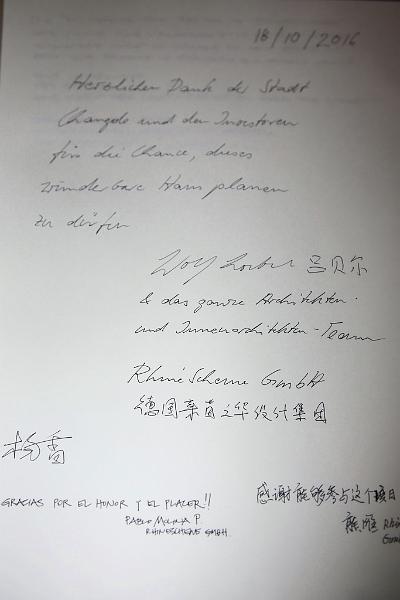 18/10/2016
Herzlichen Dank der Stadt
Changde und den Investoren
für die Chance, dieses
wunderbare Haus planen
zu dürfen
Wolf Loebel 吕贝尔
& das ganze Architekten-
und Innenarchitekten-Team
RhineScheme GmbH
德国莱茵之华设计集团
杨蕾
GRACIAS POR EL HONOR Y EL PLACER!!
PABLO MOLINA P.
RHINESCHEME GMBH.
感谢能够参与这个项目
熊雁